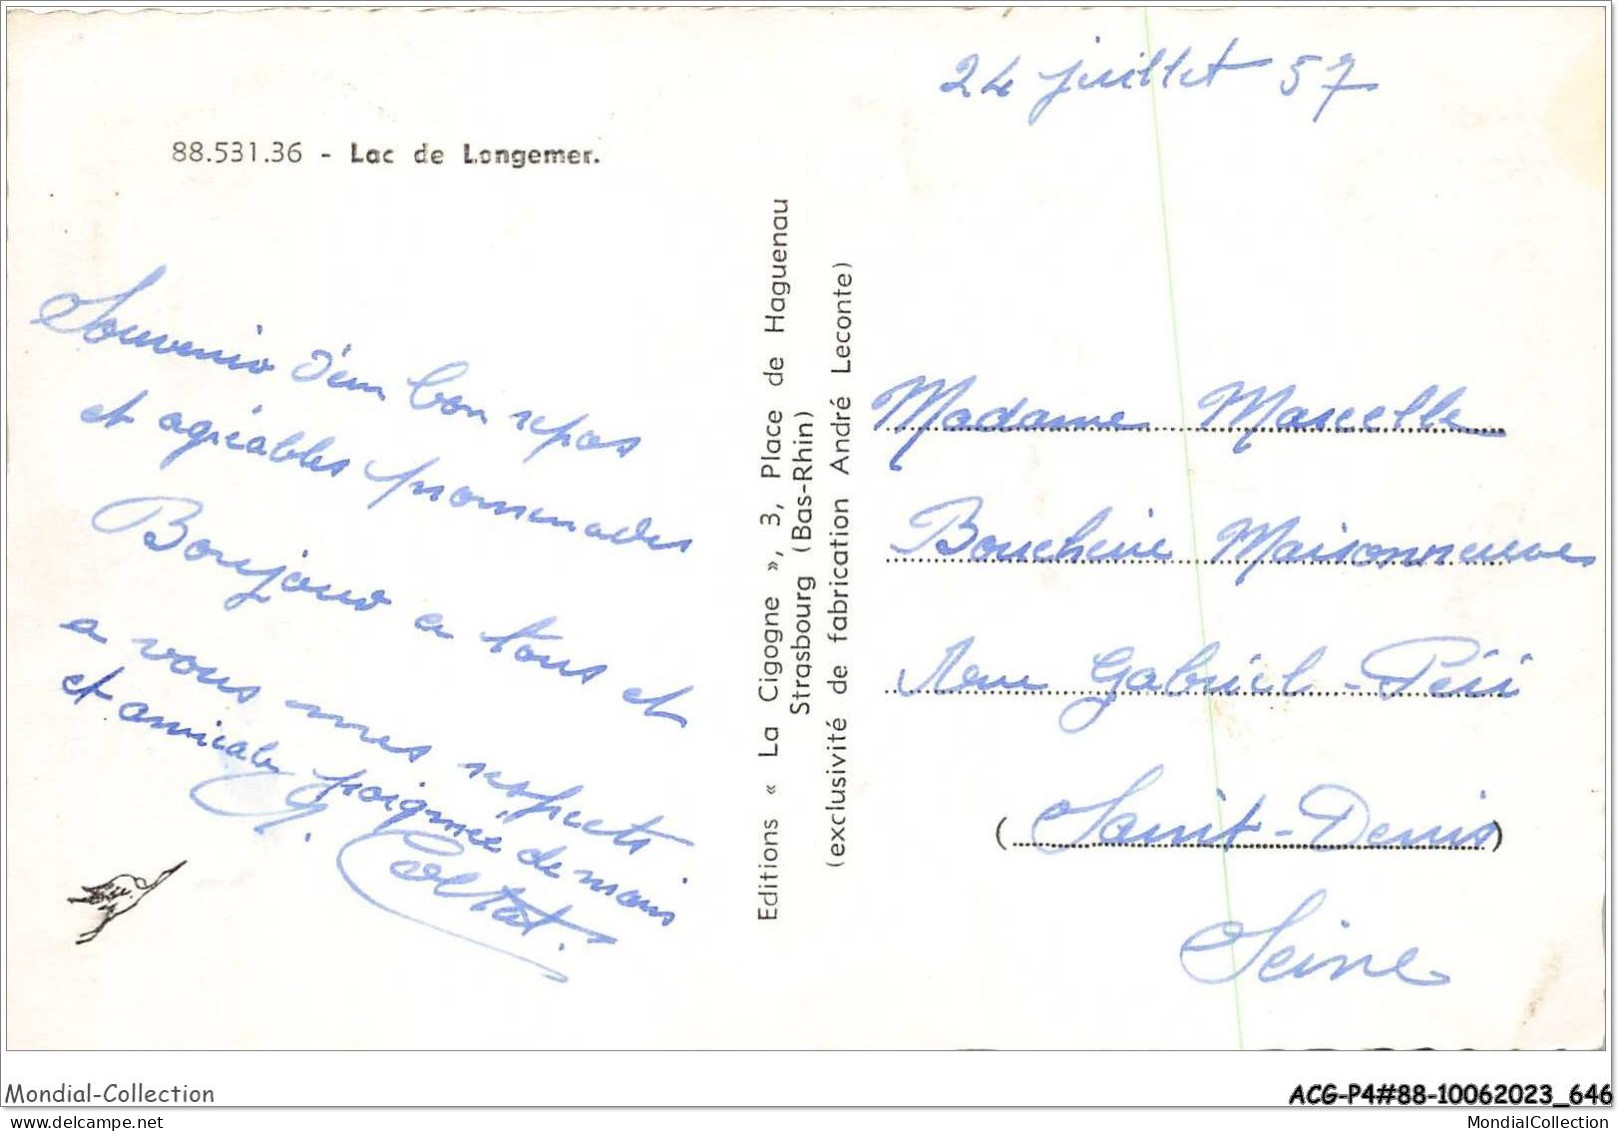 24 juillet 57
88.531.36 - Lac de Longemer.
Souvenir d'un bon repos
et agréables promenades
Bonjour a tous et
a vous mes respects
et amicale poignée de main
Editions « La Cigogne », 3, Place de Haguenau
Strasbourg (Bas-Rhin)
(exclusivité de fabrication André Leconte)
Madame Marcelle
Boucherie Maisonneuve
Rue Gabriel-Péri
(Saint-Denis)
Seine
Mondial-Collection
ACG-P4#88-10062023_646
mondial-collection.com
MondialCollection